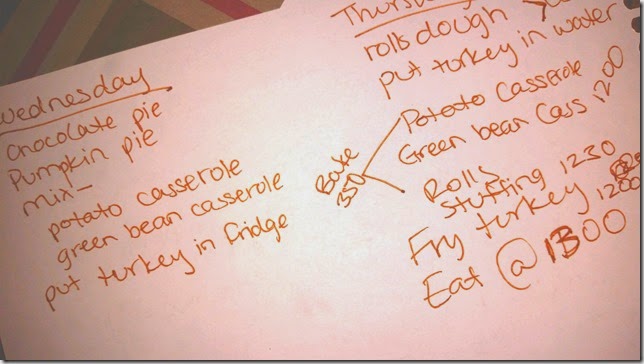 Wednesday
Chocolate pie
Pumpkin pie
mix-
potato casserole
green bean casserole
put turkey in fridge
Thursday
rolls dough
put turkey in water
Bake
350
Potato Casserole
Green bean Cass 1200
Rolls
stuffing 1230
Fry turkey 1200
Eat @ 1300